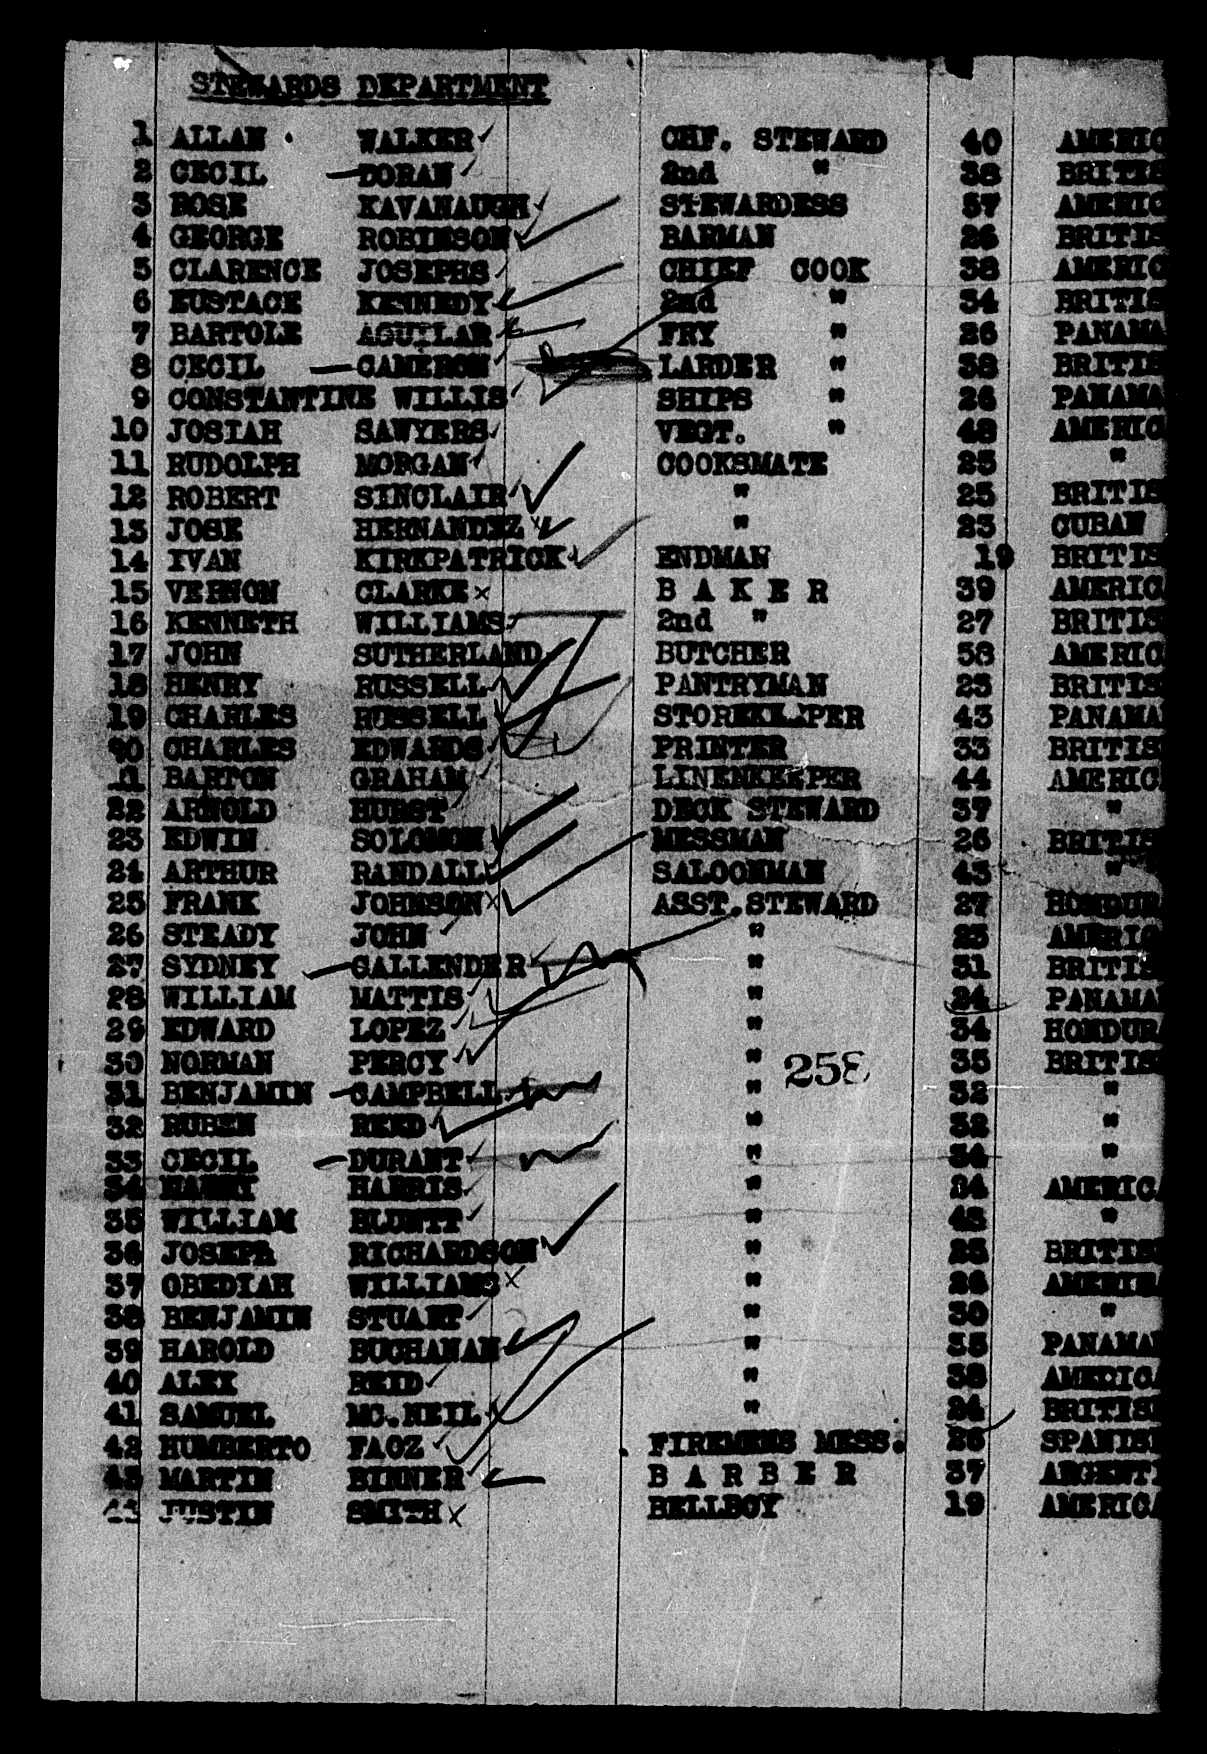 STEWARDS DEPARTMENT
1 ALLAN WALKER CHF. STEWARD 40 AMERIC
2 CECIL DORAN 2nd " 38 BRITIS
3 ROSE KAVANAUGH STEWARDESS 37 AMERIC
4 GEORGE ROBINSON BARMAN 26 BRITIS
5 CLARENCE JOSEPHS CHIEF COOK 38 AMERIC
6 EUSTACE KENNEDY 2nd " 34 BRITIS
7 BARTOLE AGUILAR FRY " 26 PANAMA
8 CECIL CAMERON LARDER " 38 BRITIS
9 CONSTANTINE WILLIS SHIPS " 26 PANAMA
10 JOSIAH SAWYERS VEGT. " 48 AMERIC
11 RUDOLPH MORGAN COOKSMATE 25 "
12 ROBERT SINCLAIR " 25 BRITIS
13 JOSE HERNANDEZ " 23 CUBAN
14 IVAN KIRKPATRICK ENDMAN 19 BRITIS
15 VERNON CLARKE B A K E R 39 AMERICA
16 KENNETH WILLIAMS 2nd " 27 BRITIS
17 JOHN SUTHERLAND BUTCHER 58 AMERIC
18 HENRY RUSSELL PANTRYMAN 23 BRITIS
19 CHARLES RUSSELL STOREKEEPER 43 PANAMA
20 CHARLES EDWARDS PRINTER 33 BRITIS
21 BARTON GRAHAM LINENKEEPER 44 AMERIC
22 ARNOLD HURST DECK STEWARD 37 "
23 EDWIN SOLOMON MESSMAN 26 BRITIS
24 ARTHUR RANDALL SALOONMAN 43 "
25 FRANK JOHNSON ASST.STEWARD 27 HONDURA
26 STEADY JOHN " 23 AMERIC
27 SYDNEY CALLENDER " 31 BRITIS
28 WILLIAM MATTIS " 24 PANAMA
29 EDWARD LOPEZ " 34 HONDURA
30 NORMAN PERCY " 35 BRITIS
258
31 BENJAMIN CAMPBELL " 32 "
32 RUBEN REED " 32 "
33 CECIL DURANT " 34 "
34 HARRIS " 24 AMERICA
35 WILLIAM BLUNTT " 48 "
36 JOSEPH RICHARDSON " 25 BRITIS
37 OBEDIAH WILLIAMS " 26 AMERICA
38 BENJAMIN STUART " 30 "
39 HAROLD BUCHANAN " 35 PANAMA
40 ALEX REID " 38 AMERICA
41 SAMUEL MC.NEIL " 24 BRITIS
42 HUMBERTO FAOZ FIREMENS MESS. 26 SPANIS
43 MARTIN BINNER B A R B E R 37 ARGENTI
44 JUSTIN SMITH BELLBOY 19 AMERICA